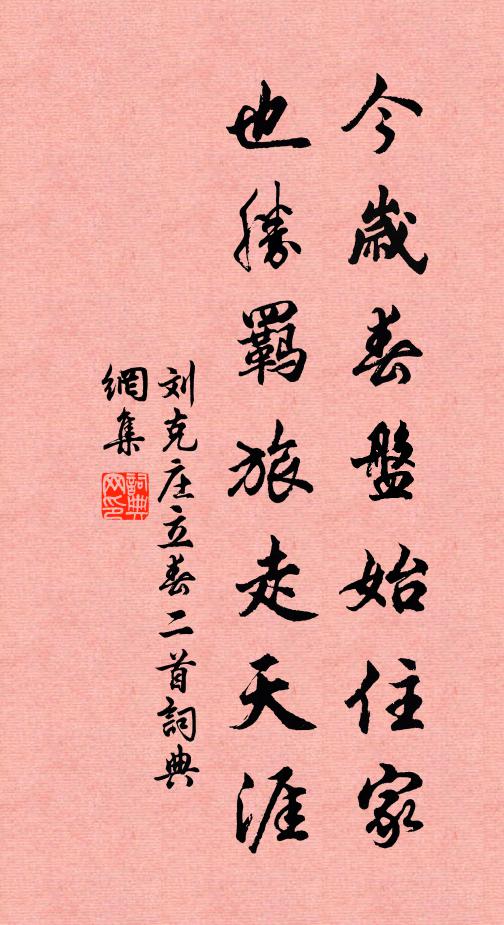 今歲春盤始住家
也勝羈旅走天涯
刘克庄立春二首詞典
網集
詞典網印